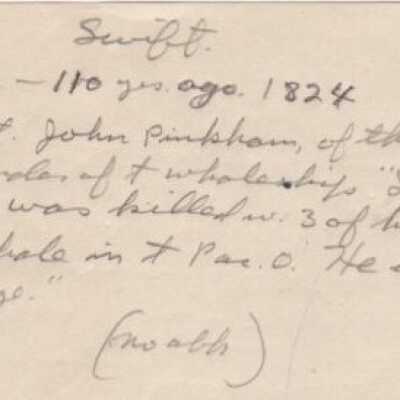 Swift.
— 110 yrs. ago. 1824
t. John Pinkham, of th
of t whaleship "
was killed w. 3 of h
hale in t Pac. O. He
ge."
(no abb)